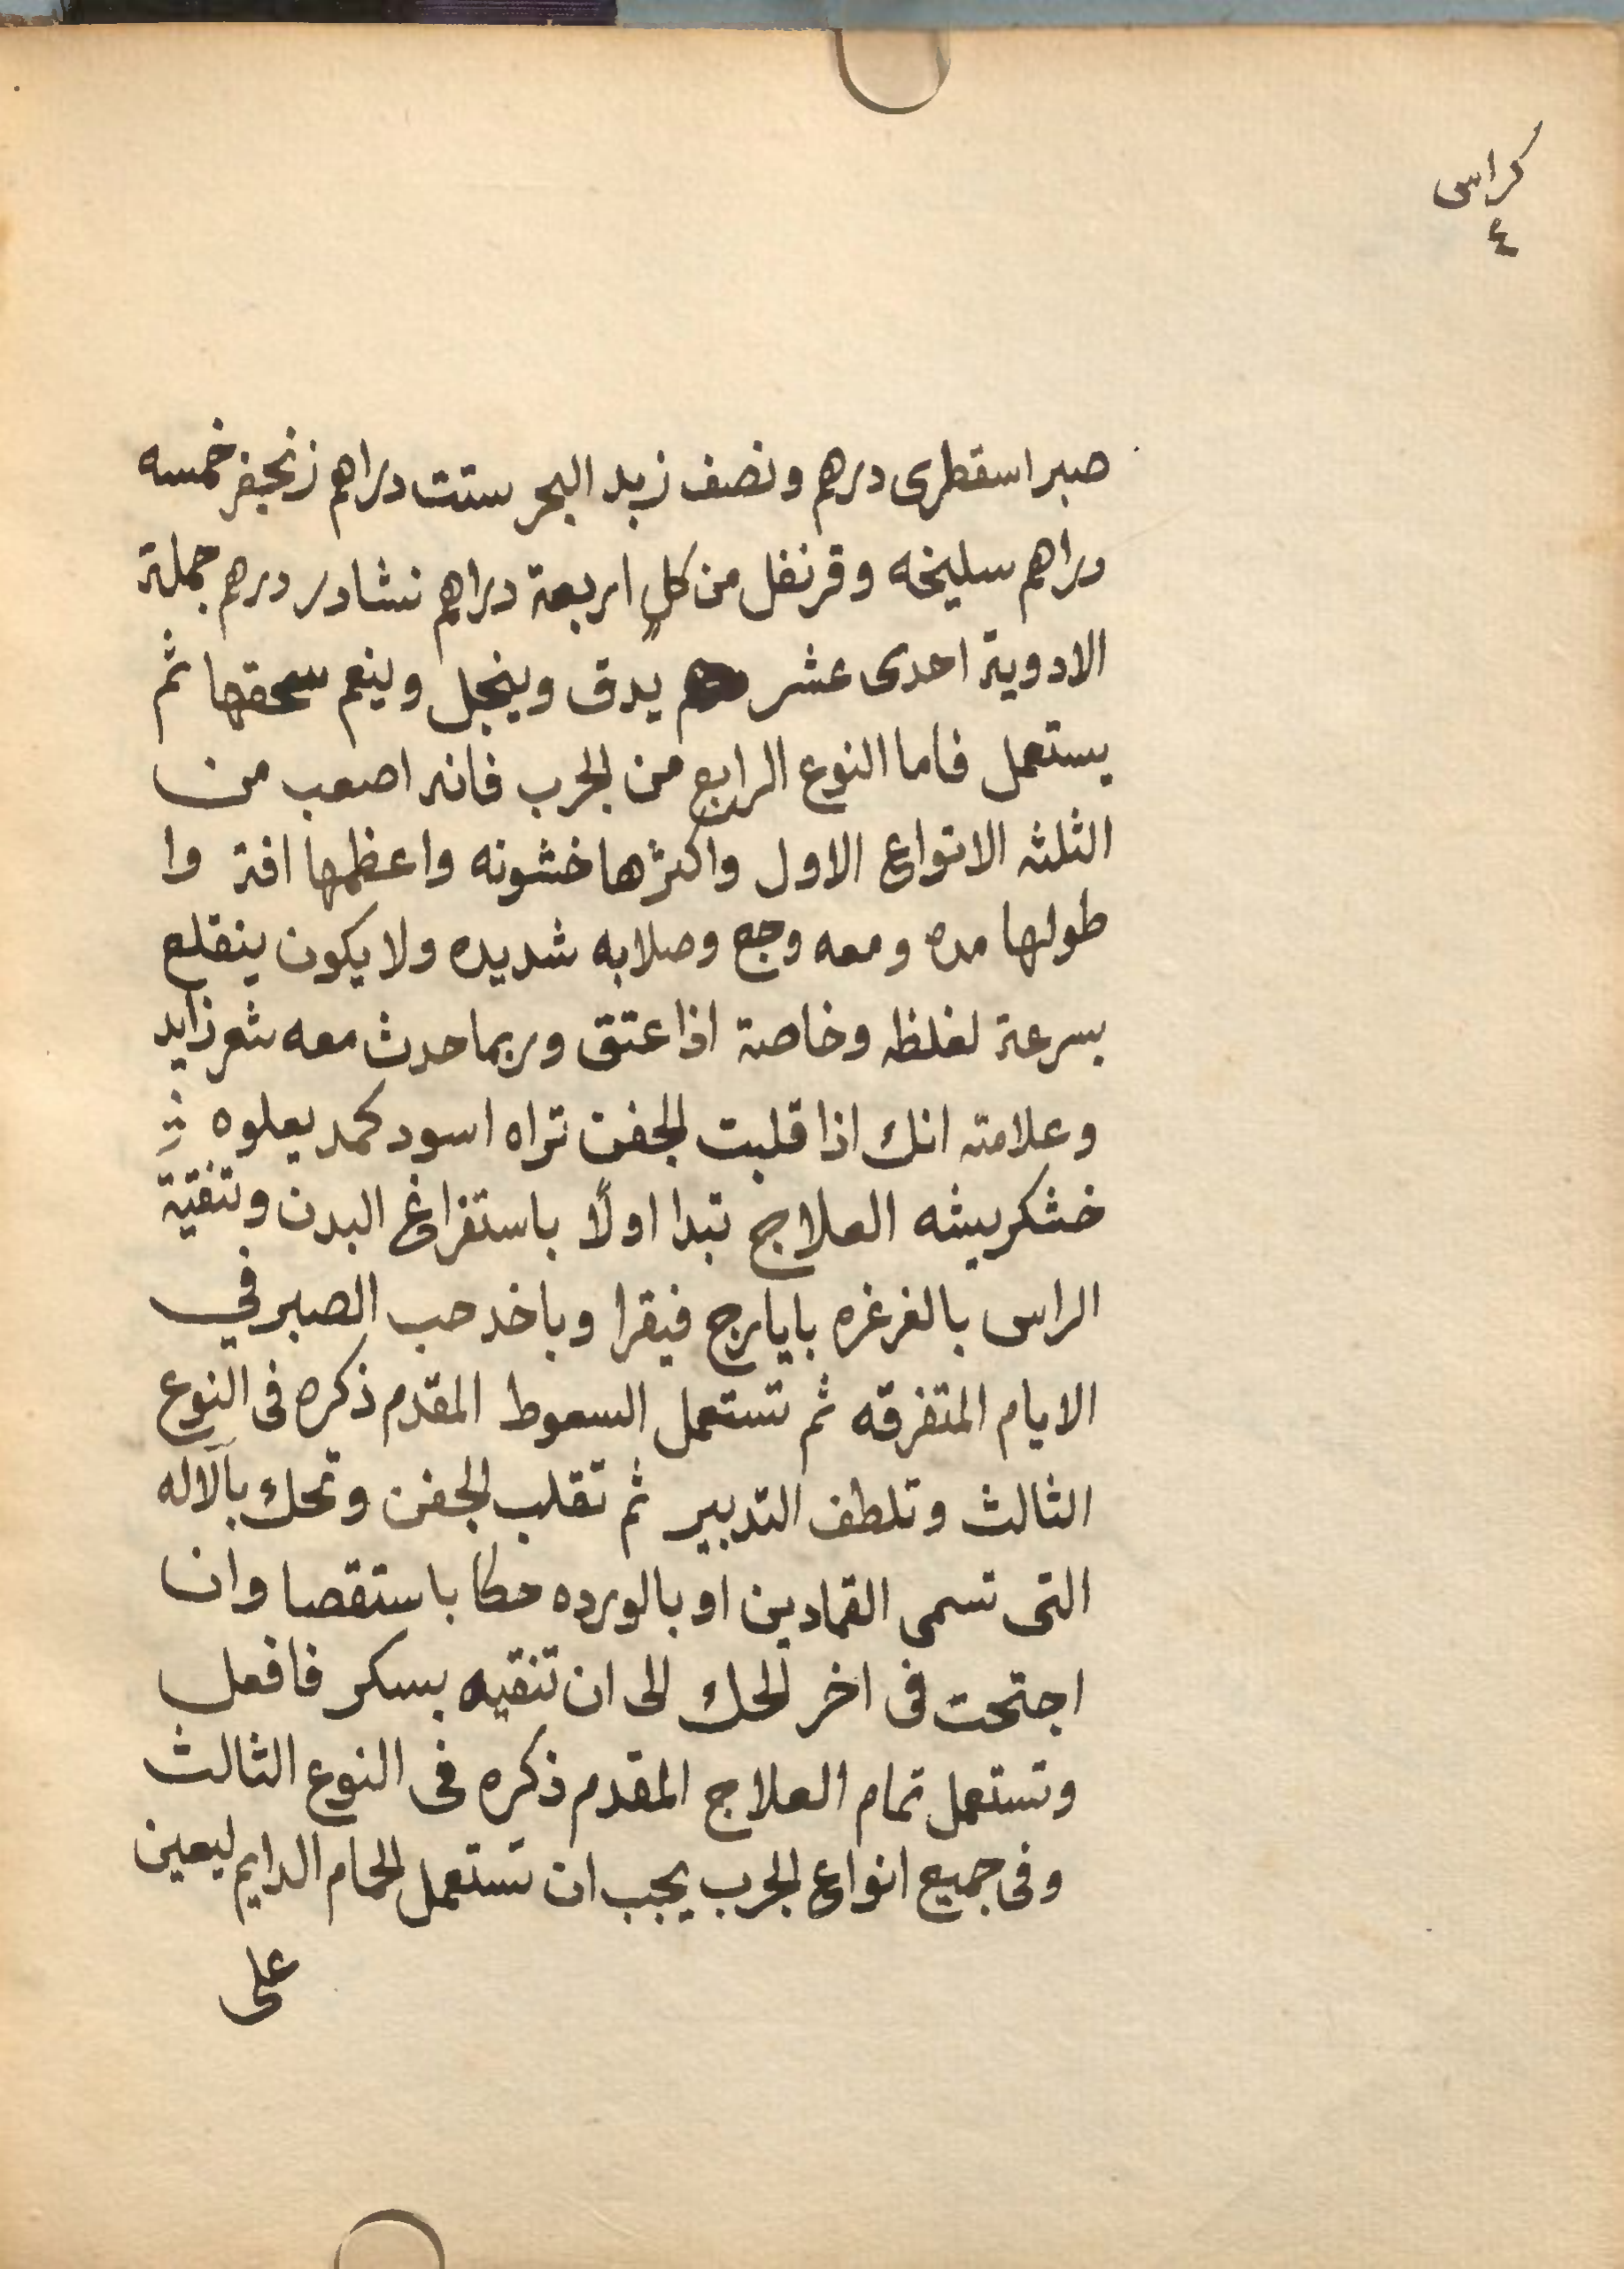 كراس
٤
صبر اسقطرى درهم ونصف زبد البحر ستت دراهم زنجفر خمسه
دراهم سليخه وقرنفل من كلٍ اربعة دراهم نشادر درهم جملة
الادوية احدى عشر يدق وينخل وينعم سحقها ثم
يستعمل فاما النوع الرابع من الجرب فانه اصعب من
الثلثه الانواع الاول واكثرها خشونه واعظمها افة وا
طولها مده ومعه وجع وصلابه شديده ولا يكون ينقلع
بسرعة لغلظه وخاصة اذا عتق وربما حدث معه شعر زايد
وعلامته انك اذا قلبت الجفن تراه اسود كمد يعلوه
خشكريشه العلاج تبدا اولًا باستفراغ البدن وتنقية
الراس بالغرغره بايارج فيقرا وباخد حب الصبر في
الايام المتفرقه ثم تستعمل السعوط المقدم ذكره فى النوع
الثالث وتلطف التدبير ثم تقلب الجفن وتحك بآلاله
التى تسمى القمادين او بالورده حكا باستقصا وان
اجتحت فى اخر الحك الى ان تنقيه بسكر فافعل
وتستعمل تمام العلاج المقدم ذكره فى النوع الثالث
وفى جميع انواع الجرب يجب ان تستعمل الحمام الدايم ليعين
على